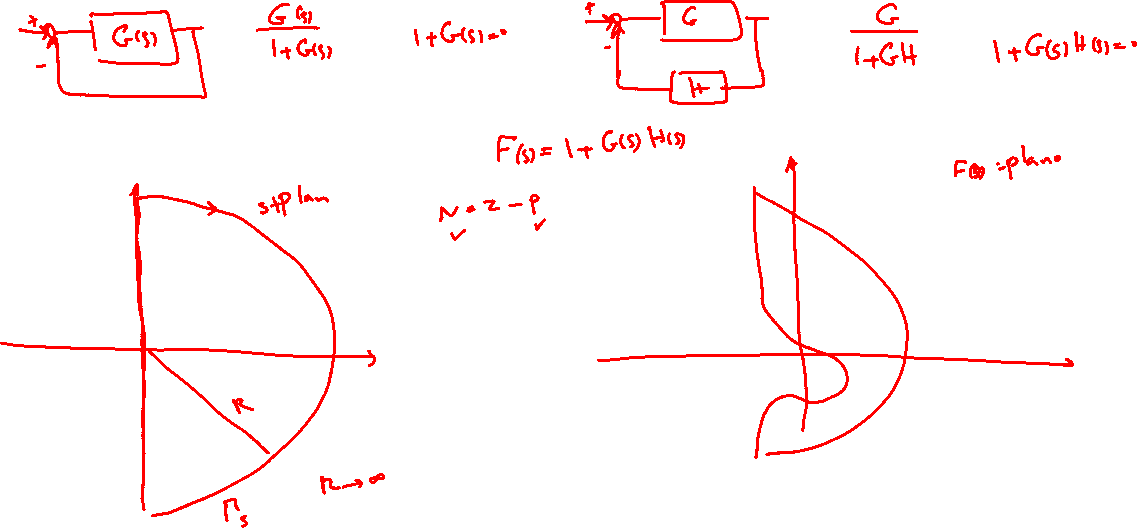 + G(s) G(s)/1+G(s) 1+G(s)=0
-
+ G G/1+GH 1+G(s)H(s)=0
-
H
F(s)=1+G(s)H(s)
s-plan
N=Z-P
F(s)-plane
R
R→∞
Γs